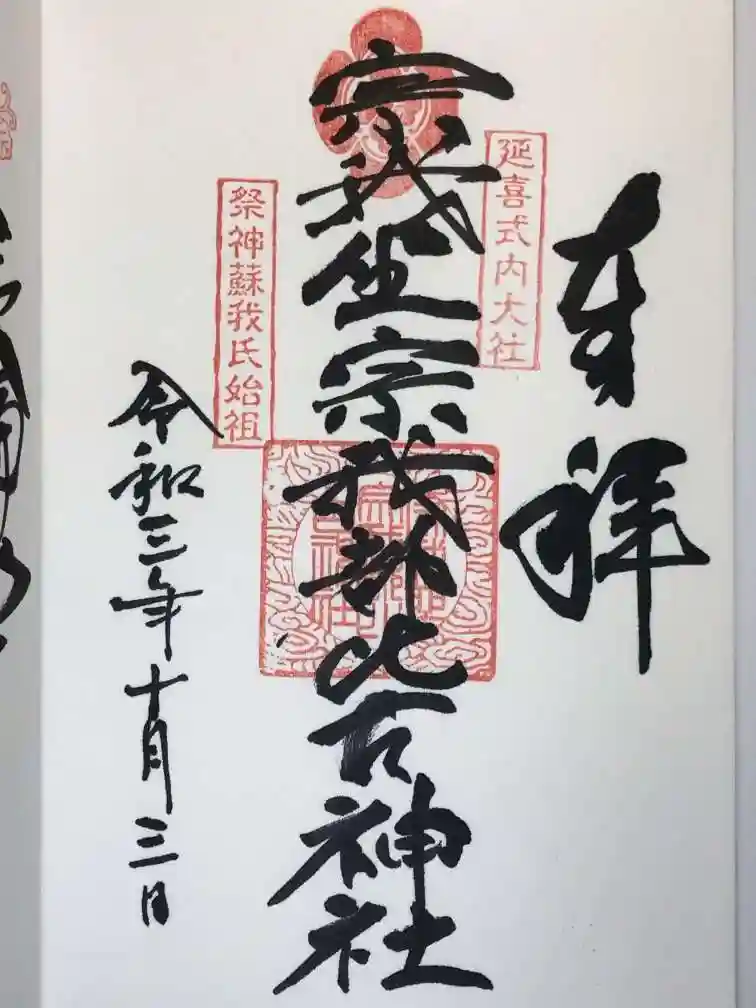 奉拝
延喜式内大社
宗我坐宗我部比古神社
祭神蘇我氏始祖
令和三年十月三日